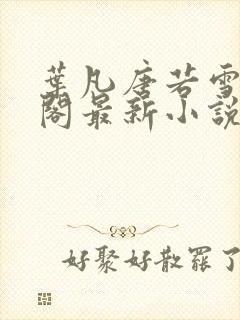 葉凡唐若雪
閣最新小說
好聚好散罷了